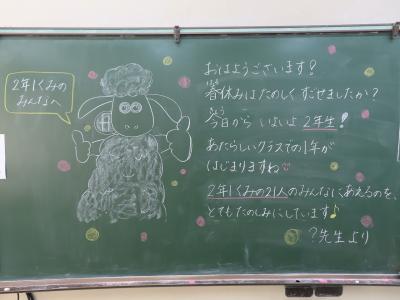 2年1くみの
みんなへ
おはようございます!
春休みはたのしくすごせましたか?
今日から いよいよ 2年生!
あたらしいクラスでの1年が
はじまりますね
2年1くみの21人のみんなにあえるのを、
とてもたのしみにしています♪
?先生より